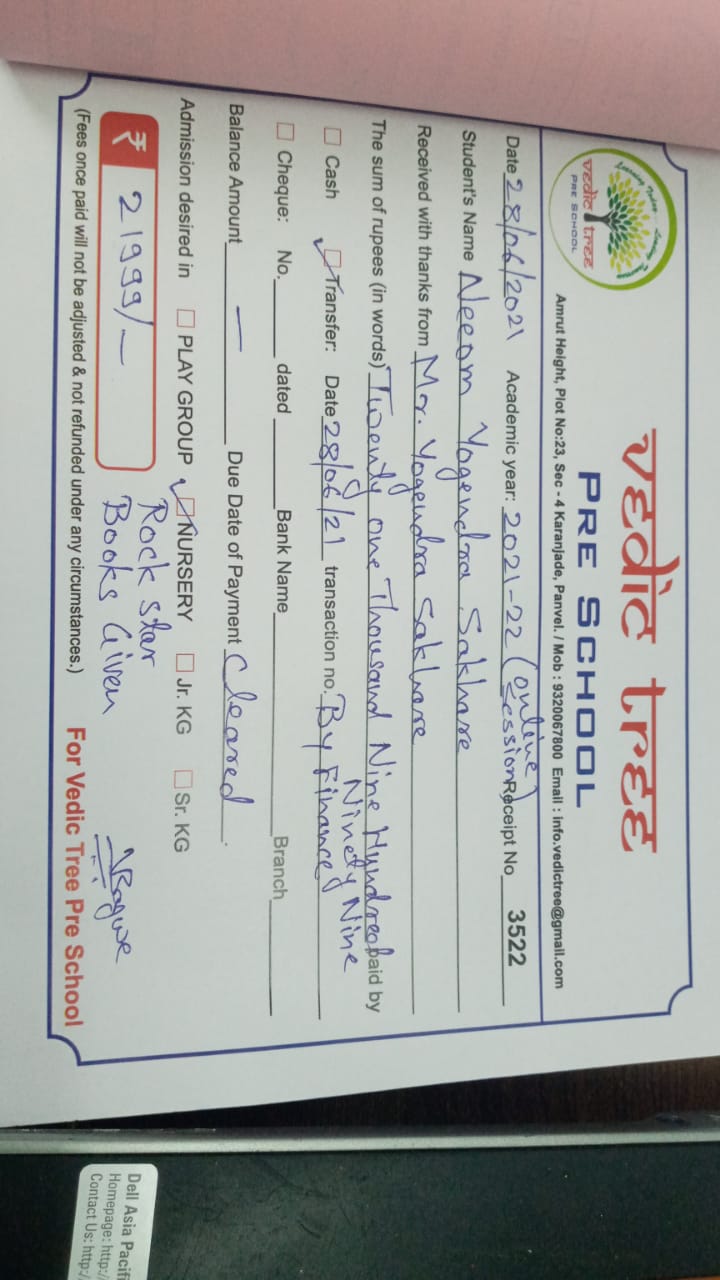 vedic tree
PRE SCHOOL
vedic tree
PRE SCHOOL
Amrut Height, Plot No:23, Sec - 4 Karanjade, Panvel. / Mob : 9320067800 Email : info.vedictree@gmail.com
Date 28/06/2021 Academic year: 2021-22 (online session) Receipt No 3522
Student's Name Neeom Yogendra Sakhare
Received with thanks from Mr. Yogendra Sakhare
The sum of rupees (in words) Twenty one Thousand Nine Hundred paid by
Ninety Nine
Cash Transfer: Date 28/06/21 transaction no. By Finance
Cheque: No. dated Bank Name Branch
Balance Amount — Due Date of Payment Cleared.
Admission desired in PLAY GROUP NURSERY Jr. KG Sr. KG
Rock star
₹ 21999/- Books Given
(Fees once paid will not be adjusted & not refunded under any circumstances.) For Vedic Tree Pre School
Dell Asia Pacifi
Homepage: http:/
Contact Us: http:/